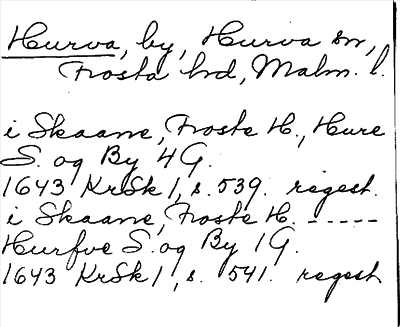 Hurva, by, Hurva sn,
Frosta hd, Malm. l.
i Skaane, Froste H., Hure
S. og By 4 G.
1643 KrSk 1, s. 539. regest.
i Skaane, Froste H. -----
Hurfve S. og By 1 G.
1643 KrSk 1, s. 541. regest